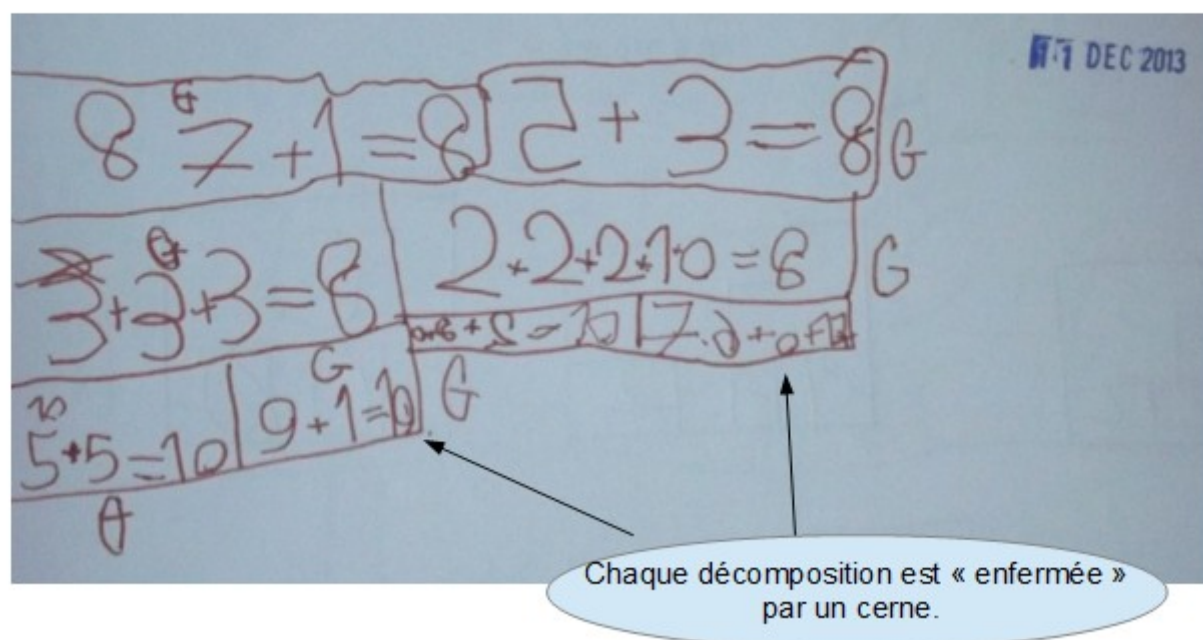 11 DEC 2013
8 7+1=8 5+3=8 G
3+3+3=8 2+2+2+10=8 G
+5=10 7
5+5=10 9+1=10 G
G
Chaque décomposition est « enfermée »
par un cerne.